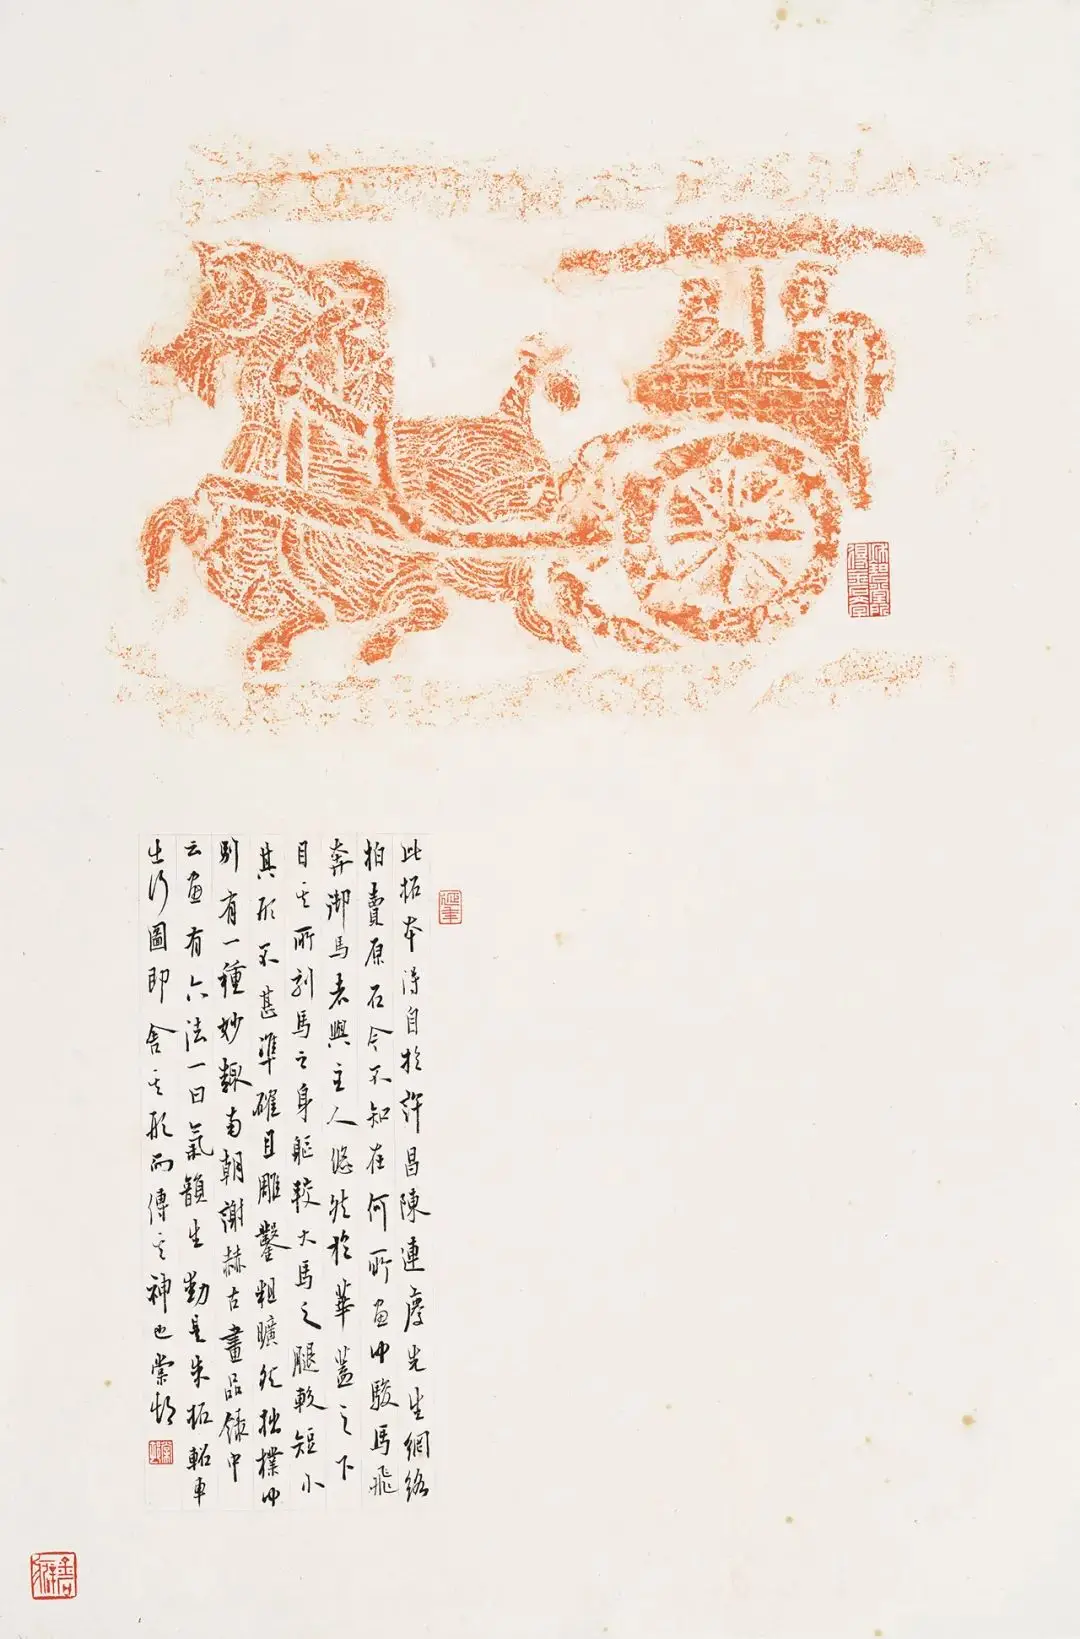 此拓本得自於許昌陳連慶先生網絡
拍賣原石今不知在何所画中駿馬飛
奔御馬者與主人悠然於華蓋之下
目其所刻馬之身軀較大馬之腿較短小
其形不甚準確且雕鑿粗曠然拙樸中
別有一種妙趣南朝謝赫古畫品錄中
云画有六法一曰氣韻生動是朱拓軺車
出行圖即舍其形而傳其神也棠邨
延年